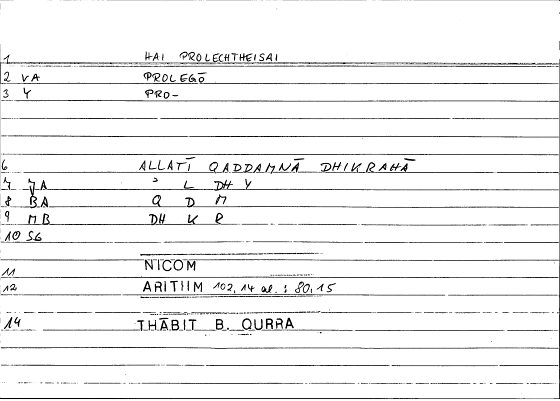 1 HAI PROLECHTHEISAI
2 VA PROLEGŌ
3 Y PRO-
6 ALLATĪ QADDAMNĀ DHIKRAHĀ
7 JA ʾ L DH Y
8 BA Q D M
9 MB DH K R
10 56
11 NICOM
12 ARITHM 102,14 al. : 80,15
14 THĀBIT B. QURRA